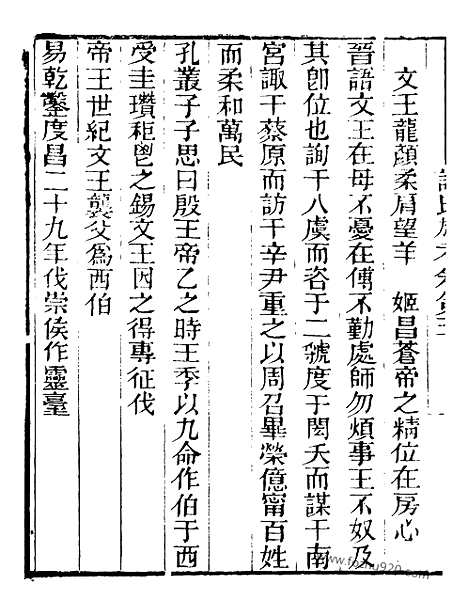 文王龍顏柔肩望羊　姬昌蒼帝之精位在房心
晉語文王在母不憂在傅不勤處師勿煩事王不怒及
其卽位也詢于八虞而咨于二虢度于閎夭而謀于南
宮諏于蔡原而訪于辛尹重之以周召畢榮億甯百姓
而柔和萬民
孔叢子子思曰殷王帝乙之時王季以九命作伯于西
受圭瓚秬鬯之錫文王因之得專征伐
帝王世紀文王龔父爲西伯
易乾鑿度昌二十九年伐崇侯作靈臺